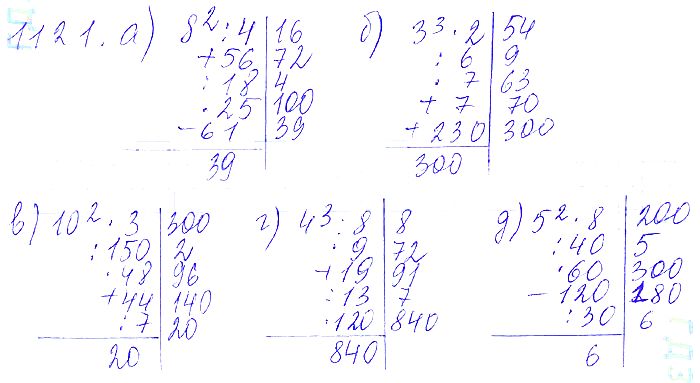 1121. а) 8²:4 | 16
+56 | 72
:18 | 4
·25 | 100
-61 | 39
39
б) 3³·2 | 54
:6 | 9
·7 | 63
+7 | 70
+230 | 300
300
в) 10²·3 | 300
:150 | 2
·48 | 96
+44 | 140
:7 | 20
20
г) 4³:8 | 8
·9 | 72
+19 | 91
:13 | 7
·120 | 840
840
д) 5²·8 | 200
:40 | 5
·60 | 300
-120 | 180
:30 | 6
6